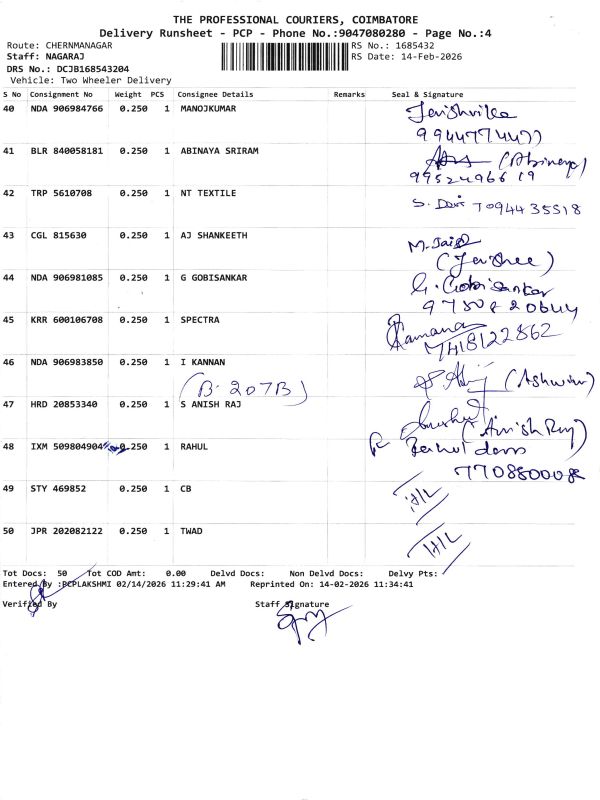 THE PROFESSIONAL COURIERS, COIMBATORE
Delivery Runsheet - PCP - Phone No.:9047080280 - Page No.:4
Route: CHERNMANAGAR RS No.: 1685432
Staff: NAGARAJ RS Date: 14-Feb-2026
DRS No.: DCJB168543204
Vehicle: Two Wheeler Delivery
S No Consignment No Weight PCS Consignee Details Remarks Seal & Signature
40 NDA 906984766 0.250 1 MANOJKUMAR
9944774477
41 BLR 840058181 0.250 1 ABINAYA SRIRAM (Abinaya)
9952496619
42 TRP 5610708 0.250 1 NT TEXTILE S. Devi 7094435518
43 CGL 815630 0.250 1 AJ SHANKEETH
44 NDA 906981085 0.250 1 G GOBISANKAR G. Gobisankar
9750820644
45 KRR 600106708 0.250 1 SPECTRA Ramana
8122862
46 NDA 906983850 0.250 1 I KANNAN (Ashwin)
(B-207B)
47 HRD 20853340 0.250 1 S ANISH RAJ (Anish Raj)
48 IXM 509804904 0.250 1 RAHUL
7708800088
49 STY 469852 0.250 1 CB H/L
50 JPR 202082122 0.250 1 TWAD H/L
Tot Docs: 50 Tot COD Amt: 0.00 Delvd Docs: Non Delvd Docs: Delvy Pts:
Entered By :PCPLAKSHMI 02/14/2026 11:29:41 AM Reprinted On: 14-02-2026 11:34:41
Verified By Staff Signature